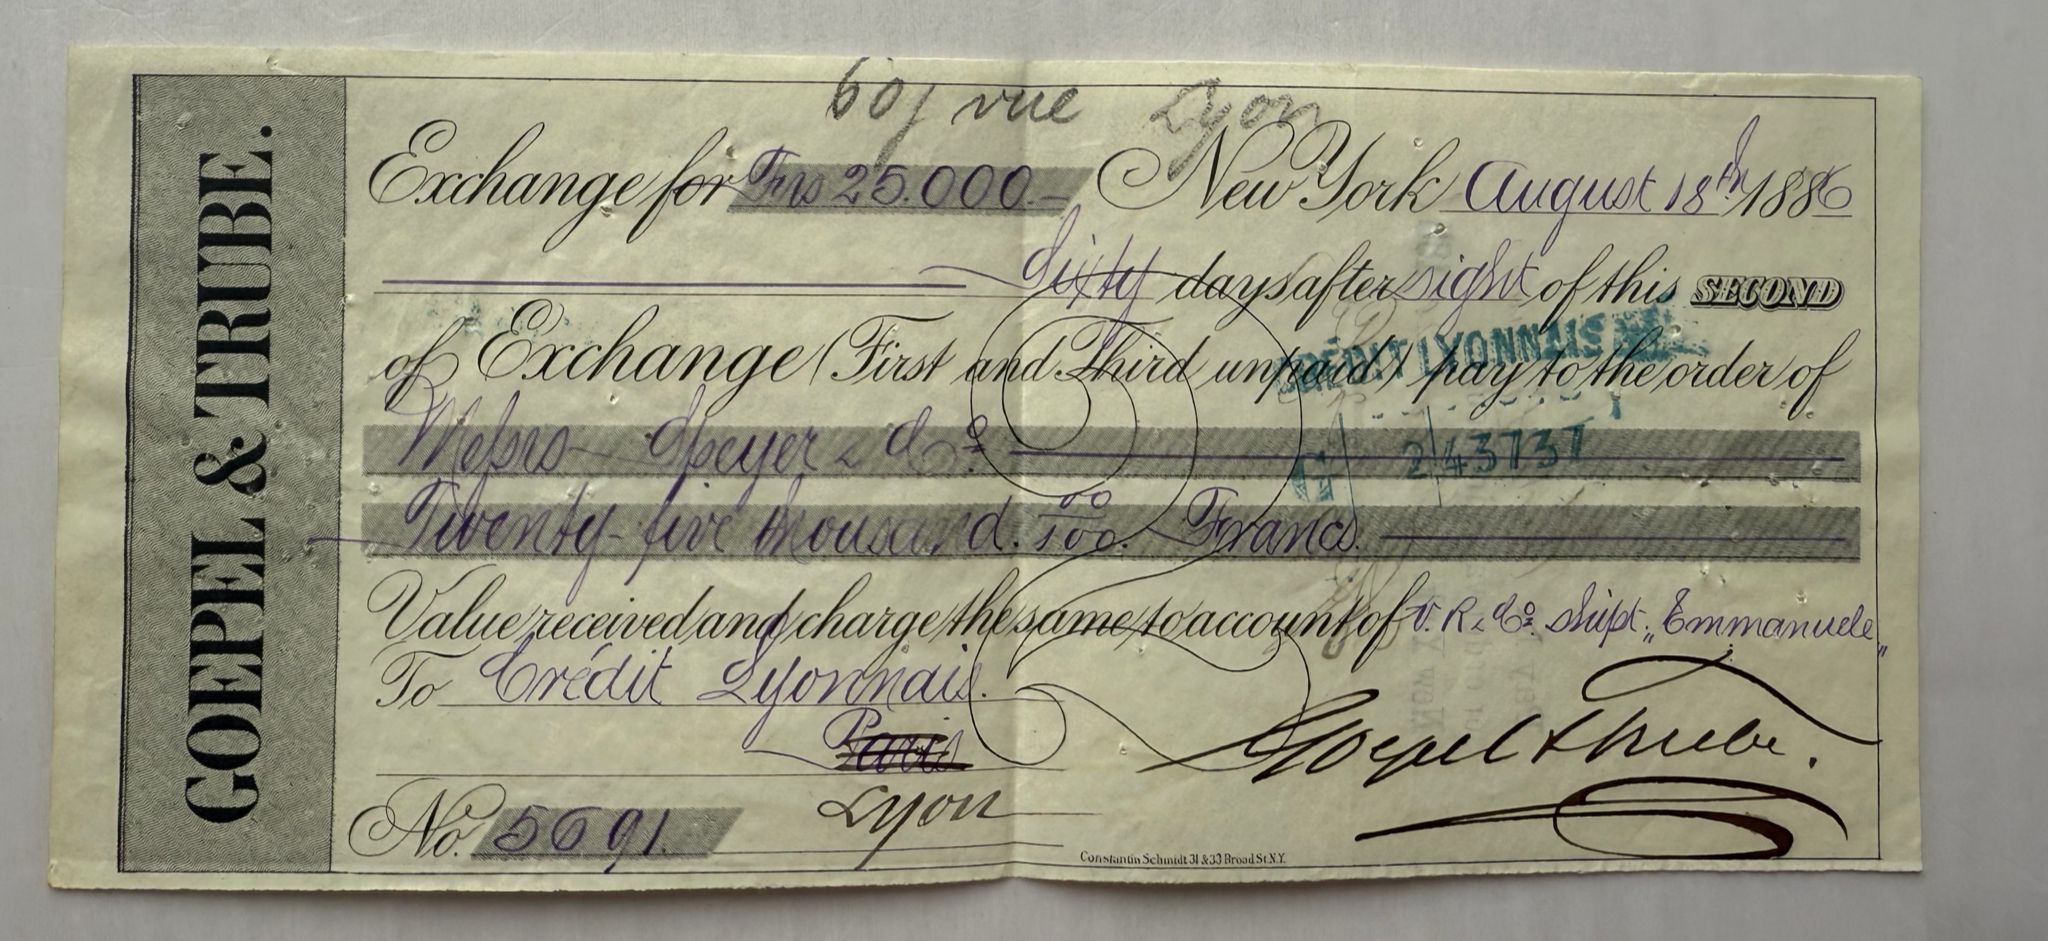 GOEPEL & TRUBE.
60j vue Lyon
Exchange for Frs 25.000.— New York August 18th 1886
Sixty days after sight of this SECOND
of Exchange (First and Third unpaid) pay to the order of
CRÉDIT LYONNAIS
Messrs Speyer & Co.
243737
Twenty-five thousand. 00/100. Francs.
Value received and charge the same to account of V. R. & Co. shipt. „Emmanuele„
To Crédit Lyonnais.
Paris
Lyon
Goepel & Trube.
No. 5691.
Constantin Schmidt 31 & 33 Broad St. N.Y.